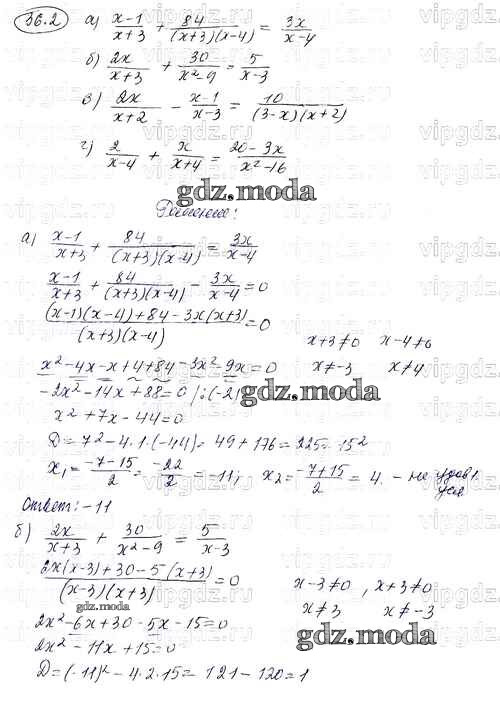 36.2 а) (x-1)/(x+3) + 84/((x+3)(x-4)) = 3x/(x-4)
б) 2x/(x+3) + 30/(x²-9) = 5/(x-3)
в) 2x/(x+2) - (x-1)/(x-3) = 10/((3-x)(x+2))
г) 2/(x-4) + x/(x+4) = (20-3x)/(x²-16)
gdz.moda
Решение:
а) (x-1)/(x+3) + 84/((x+3)(x-4)) = 3x/(x-4)
(x-1)/(x+3) + 84/((x+3)(x-4)) - 3x/(x-4) = 0
((x-1)(x-4)+84-3x(x+3))/((x+3)(x-4)) = 0
x+3≠0 x-4≠0
x≠-3 x≠4
x²-4x-x+4+84-3x²-9x=0
-2x²-14x+88=0 |:(-2)
gdz.moda
x²+7x-44=0
D=7²-4·1·(-44)=49+176=225=15²
x₁=(-7-15)/2=-22/2=-11; x₂=(-7+15)/2=4. - не удовл.
усл
Ответ: -11
б) 2x/(x+3) + 30/(x²-9) = 5/(x-3)
(2x(x-3)+30-5(x+3))/((x-3)(x+3)) = 0
x-3≠0, x+3≠0
x≠3 x≠-3
gdz.moda
2x²-6x+30-5x-15=0
2x²-11x+15=0
gdz.moda
D=(-11)²-4·2·15=121-120=1
vipgdz.ru